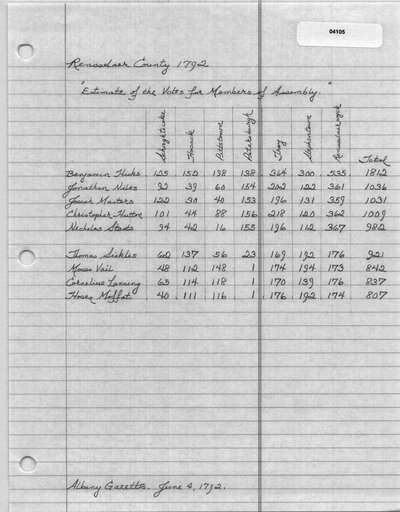 04105
Rensselaer County 1792
"Estimate of the Votes for Members of Assembly."
Schaghticoke Hoosick Pittstown Petersburgh Troy Stephentown Rensselaerwyck Total
Benjamin Hicks 125 152 198 138 364 300 535 1812
Jonathan Niles 92 39 60 154 202 122 361 1036
Josiah Masters 122 30 40 153 196 131 359 1031
Christopher Hutton 101 44 88 156 218 120 362 1009
Nicholas Staats 94 42 16 155 196 112 367 982
Thomas Sickles 60 137 56 23 169 192 176 921
Moses Vail 48 112 148 1 174 194 173 842
Cornelius Lansing 65 114 118 1 170 139 176 837
Hosea Moffat 40 111 116 1 176 192 174 807
Albany Gazette. June 4, 1792.